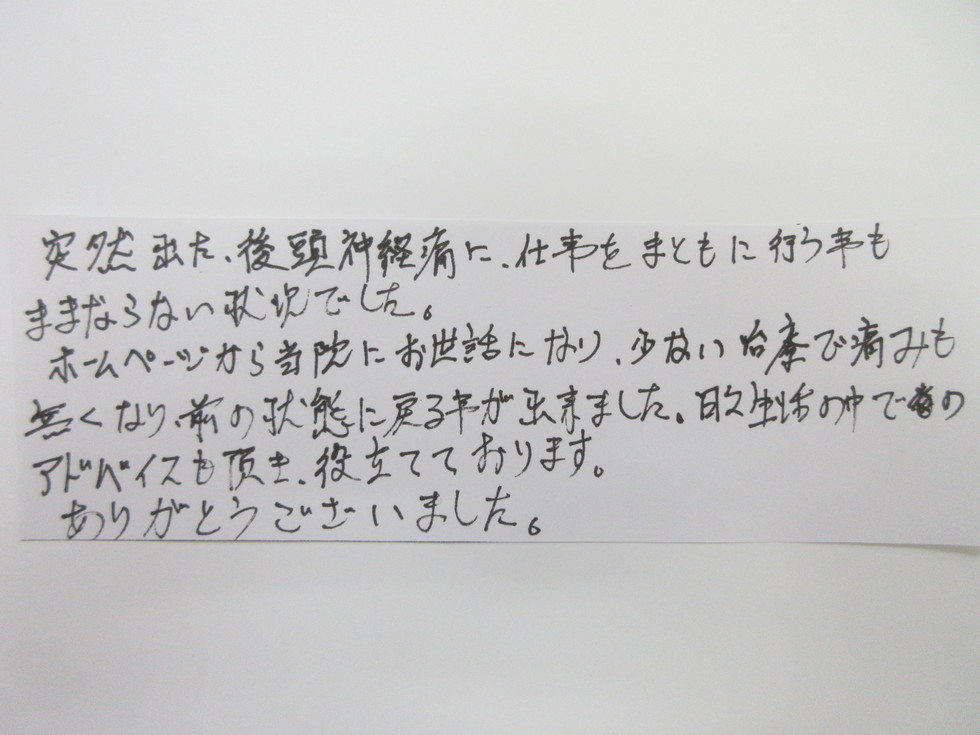 突然出た、後頭神経痛に、仕事をまともに行う事も
ままならない状況でした。
ホームページから当院にお世話になり、少ない治療で痛みも
無くなり、前の状態に戻る事が出来ました。日々生活の中での
アドバイスも頂き、役立てております。
ありがとうございました。